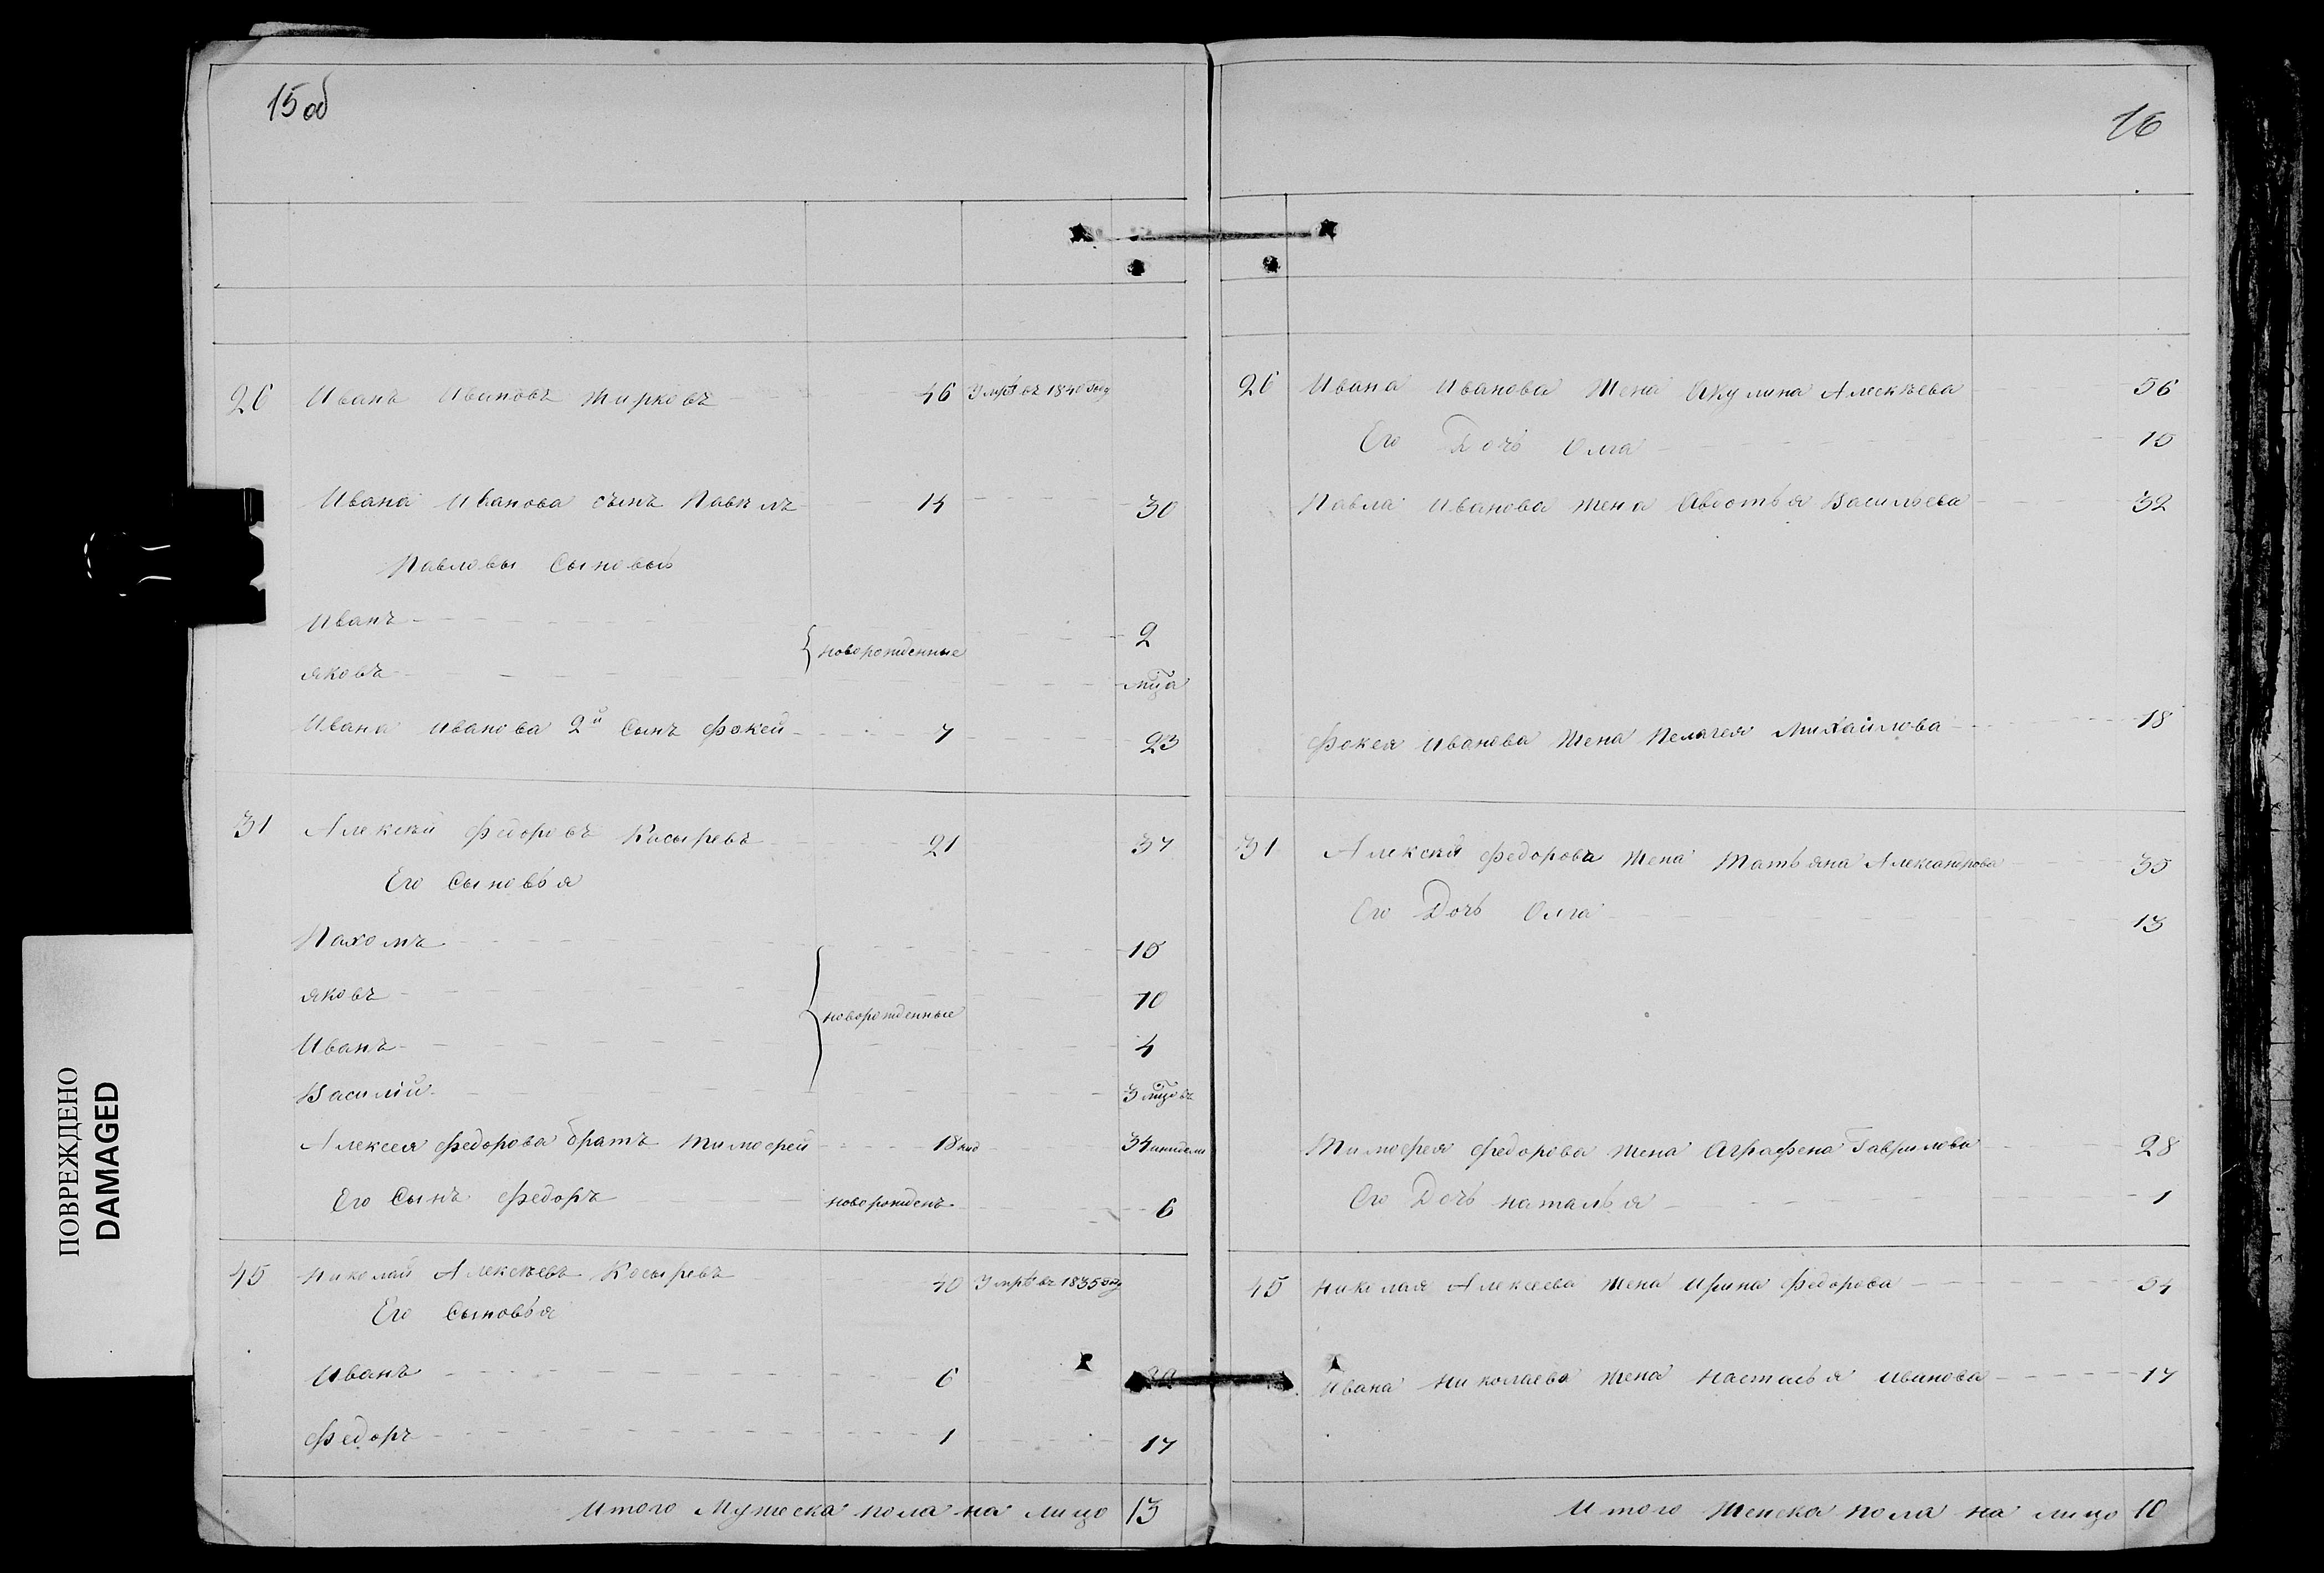 15об
26 Иванъ Ивановъ Жирковъ 46 Умръ въ 1840 году
Ивана Иванова сынъ Павелъ 14 30
Павловы Сыновья
Иванъ 2
новорожденные
Яковъ м͠ца
Ивана Иванова 2й Сынъ Фокей 7 23
31 Алексѣй Федоровъ Косыревъ 21 37
Его Сыновья
Пахомъ 15
Яковъ 10
новорожденные
Иванъ 4
Василій 3 м͠цовъ
Алексея Федорова братъ Тимофей 18 34
Его Сынъ Федоръ новорожденъ 6
45 Николай Алексѣевъ Косыревъ 40 Умръ въ 1835 году
Его Сыновья
Иванъ 6 22
Федоръ 1 17
Итого Мужеска пола на лицо 13
16
26 Ивана Иванова Жена Акулина Алексѣева 56
Его Дочь Олга 15
Павла Иванова жена Авдотья Васильева 32
Фокея Иванова Жена Пелагея Михайлова 18
31 Алексѣя Федорова жена Татьяна Александрова 35
Его Дочь Олга 13
Тимофея Федорова жена Аграфена Гаврилова 28
Его Дочь Наталья 1
45 Николая Алексеева жена Ирина Федорова 54
Ивана Николаева жена Настасья Иванова 17
Итого Женска пола на лицо 10
ПОВРЕЖДЕНО
DAMAGED